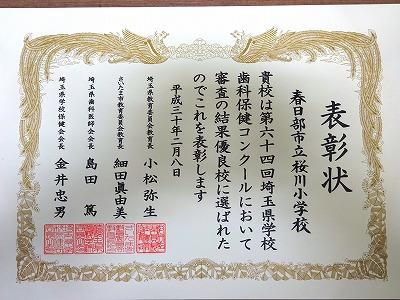 表彰状
春日部市立桜川小学校
貴校は第六十四回埼玉県学校
歯科保健コンクールにおいて
審査の結果優良校に選ばれた
のでこれを表彰します
平成三十年二月八日
埼玉県教育委員会教育長 小松弥生
さいたま市教育委員会教育長 細田眞由美
埼玉県歯科医師会会長 島田篤
埼玉県学校保健会会長 金井忠男